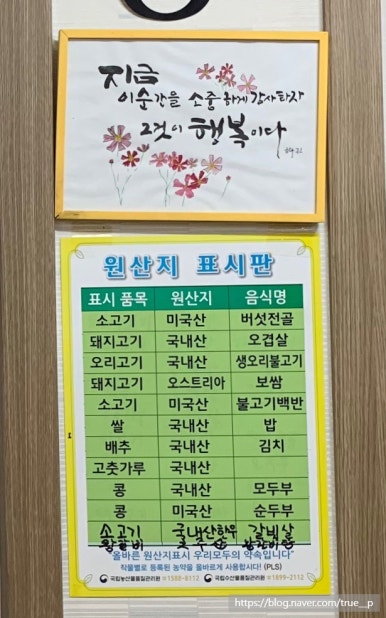 지금
이순간을 소중하게 감사하자
그것이 행복이다
원산지 표시판
표시 품목 원산지 음식명
소고기 미국산 버섯전골
돼지고기 국내산 오겹살
오리고기 국내산 생오리불고기
돼지고기 오스트리아 보쌈
소고기 미국산 불고기백반
쌀 국내산 밥
배추 국내산 김치
고춧가루 국내산
콩 국내산 모두부
콩 미국산 순두부
소고기 국내산한우 갈비살
"올바른 원산지표시 우리모두의 약속입니다"
작물별로 등록된 농약을 올바르게 사용합시다! (PLS)
국립농산물품질관리원 ☎1588-8112 국립수산물품질관리원 ☎1899-2112
https://blog.naver.com/true__p